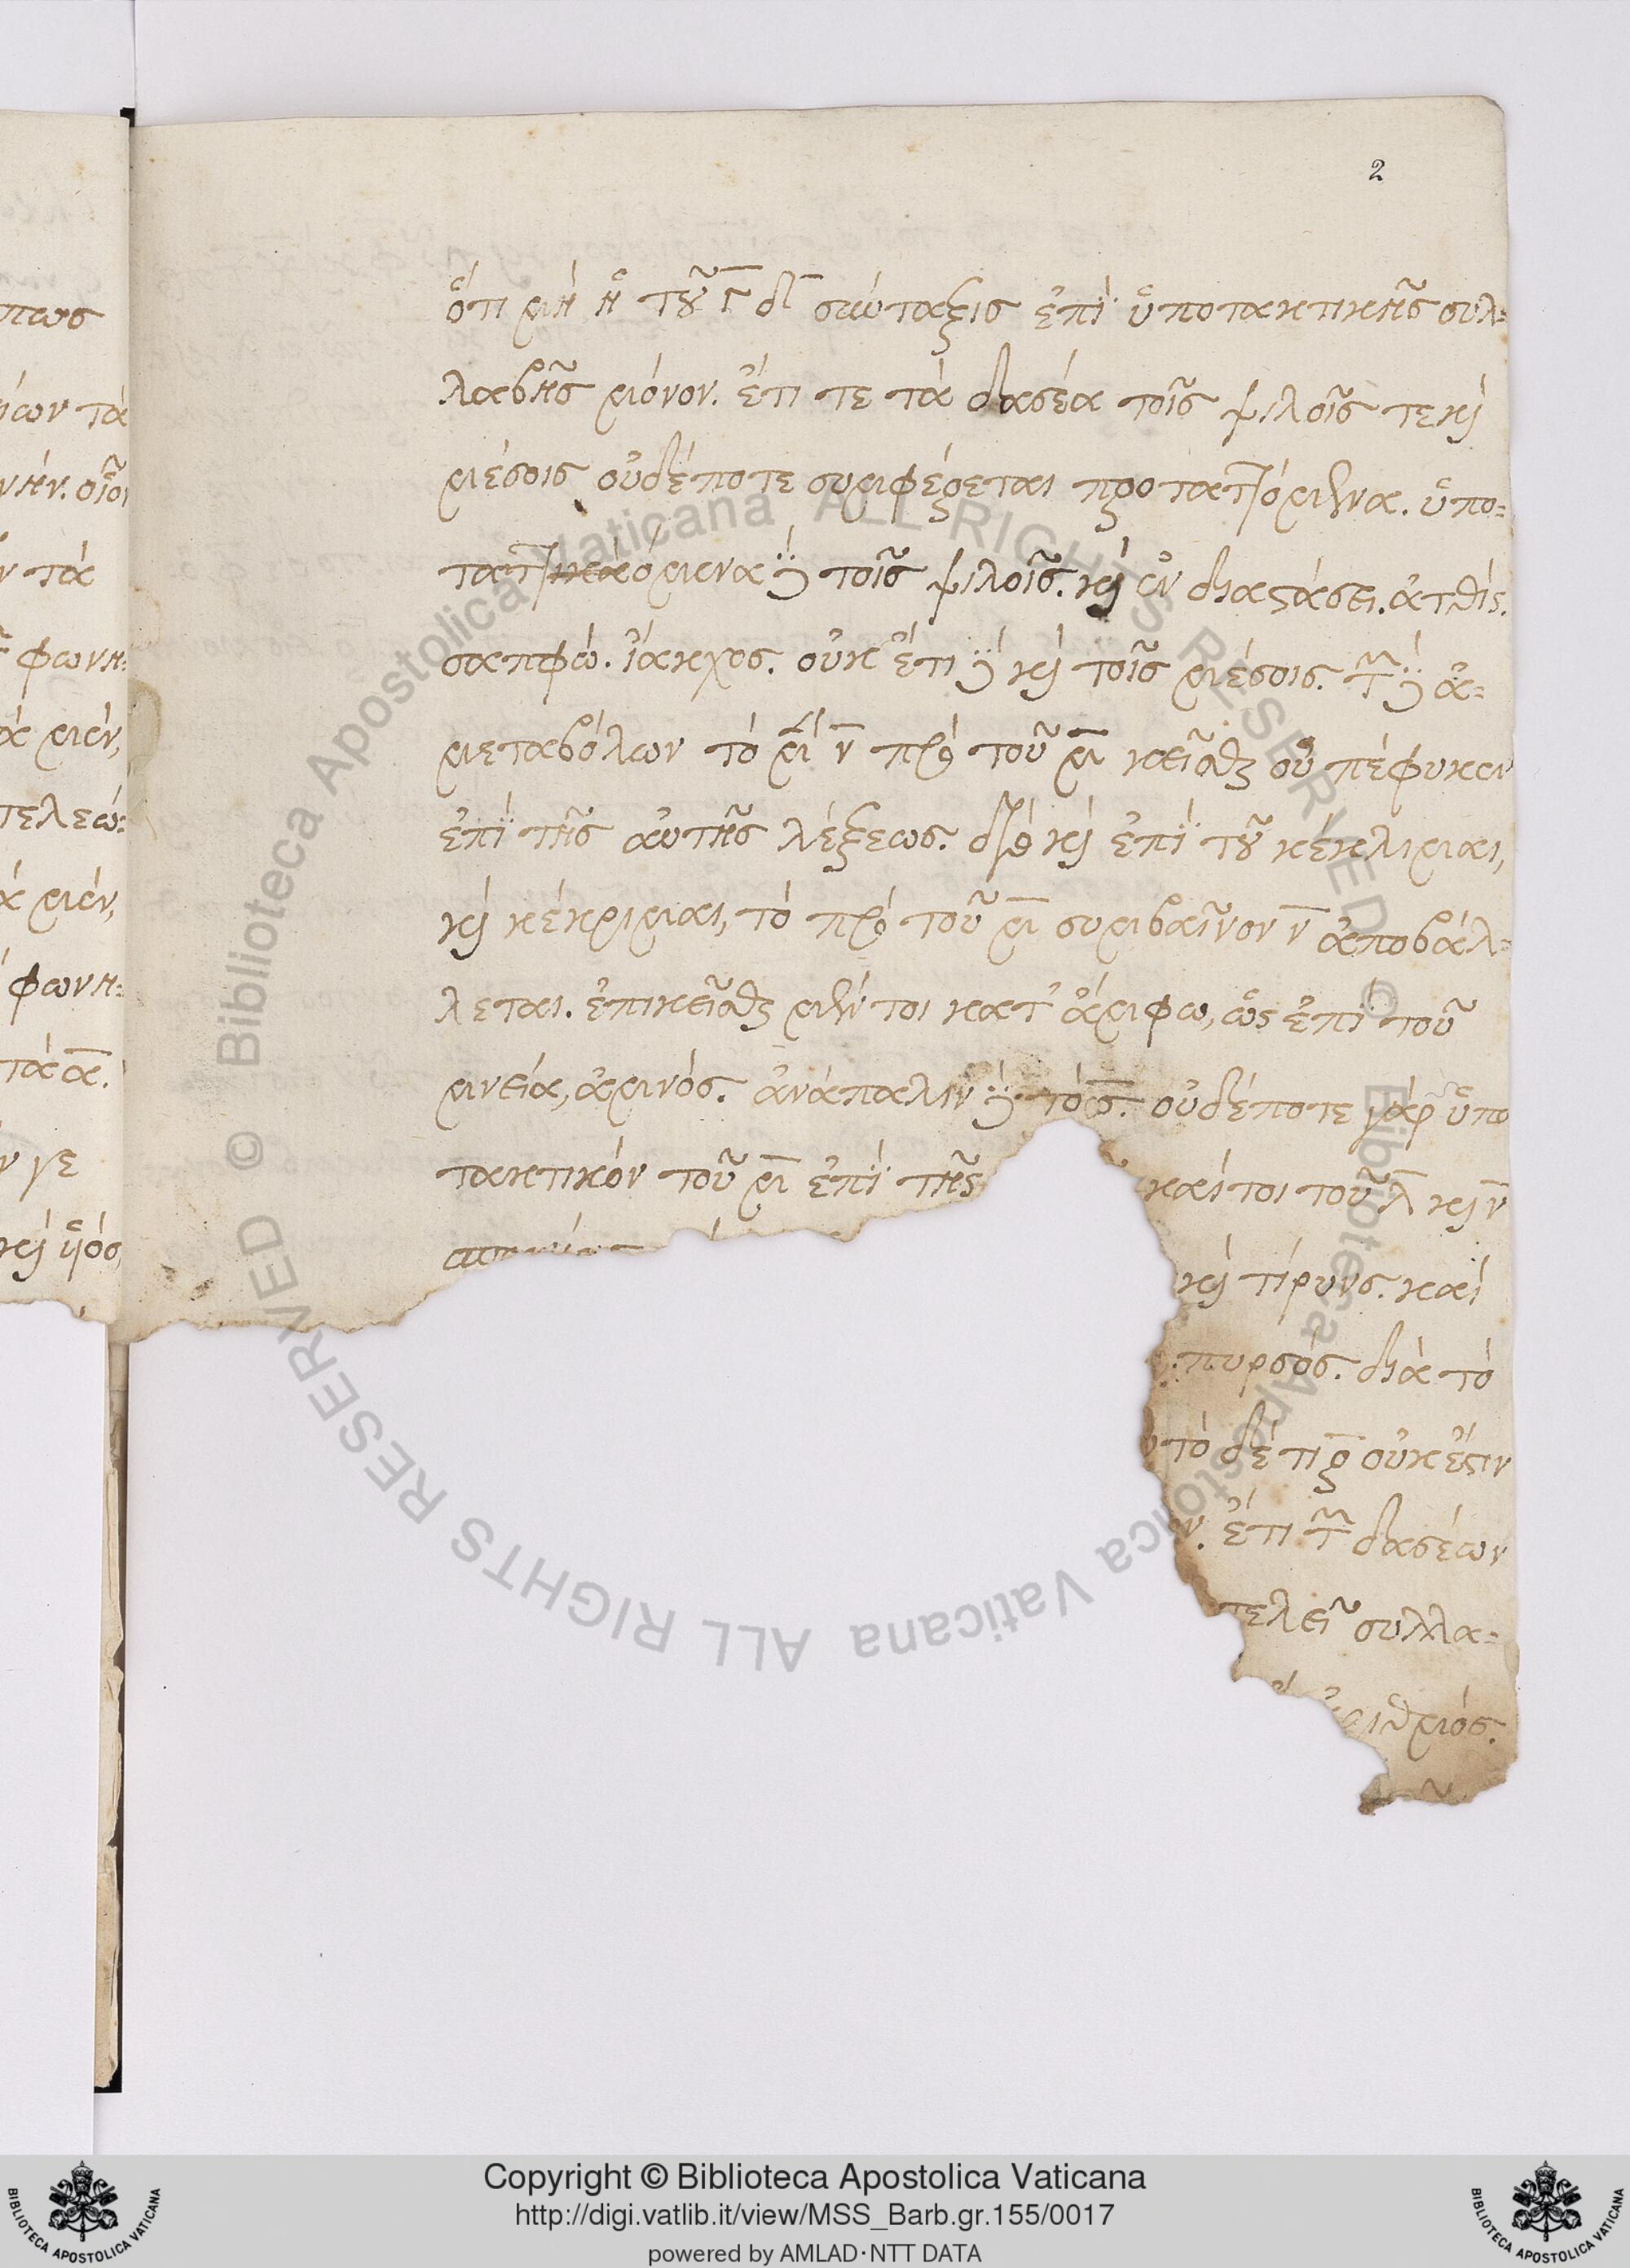 2
ὅτι μὴ ἡ τοῦ γ δ σύνταξις ἐπὶ ὑποτακτικῆς συλ-
λαβῆς μόνον. ἔτι τε τὰ δασέα τοῖς ψιλοῖς τε καὶ
μέσοις οὐδέποτε συμφέρεται προταττόμενα. ὑπο-
ταττόμενα δὲ τοῖς ψιλοῖς. καὶ ἐν διαστάσει. ἀτθίς.
σαπφώ. ἴακχος. οὐκ ἔτι δὲ καὶ τοῖς μέσοις. τῶν δὲ ἀ-
μεταβόλων τὸ μὲν ν πρὸ τοῦ μ κεῖσθαι οὐ πέφυκεν
ἐπὶ τῆς αὐτῆς λέξεως. διὸ καὶ ἐπὶ τοῦ κέκλιμαι,
καὶ κέκριμαι, τὸ πρὸ τοῦ μ συμβαῖνον ν ἀποβάλ-
λεται. ἐπικεῖσθαι μέντοι κατ' ἄμφω, ὡς ἐπὶ τοῦ
μνεία, ἀμνός. ἀνάπαλιν δὲ τὸ σ. οὐδέποτε γὰρ ὑπο
τακτικὸν τοῦ μ ἐπὶ τῆς καίτοι τοῦ λ καὶ ν
καὶ τίρυνς. καὶ
πυρσός. διὰ τὸ
τὸ δέ οὐκ ἔστιν
ν. ἔτι τῶν δασέων
τελεῖ συλλα-
μός.
πως
ίων τὰ
νήν. οἷον
ν τὰ
φωνη-
ὰ μέν,
τελεω-
ὰ μέν,
φωνη-
τὰ α.
ν γε
καὶ
© Biblioteca Apostolica Vaticana ALL RIGHTS RESERVED © Biblioteca Apostolica Vaticana ALL RIGHTS RESERVED
BIBLIOTECA APOSTOLICA VATICANA
Copyright © Biblioteca Apostolica Vaticana
http://digi.vatlib.it/view/MSS_Barb.gr.155/0017
powered by AMLAD·NTT DATA
BIBLIOTECA APOSTOLICA VATICANA